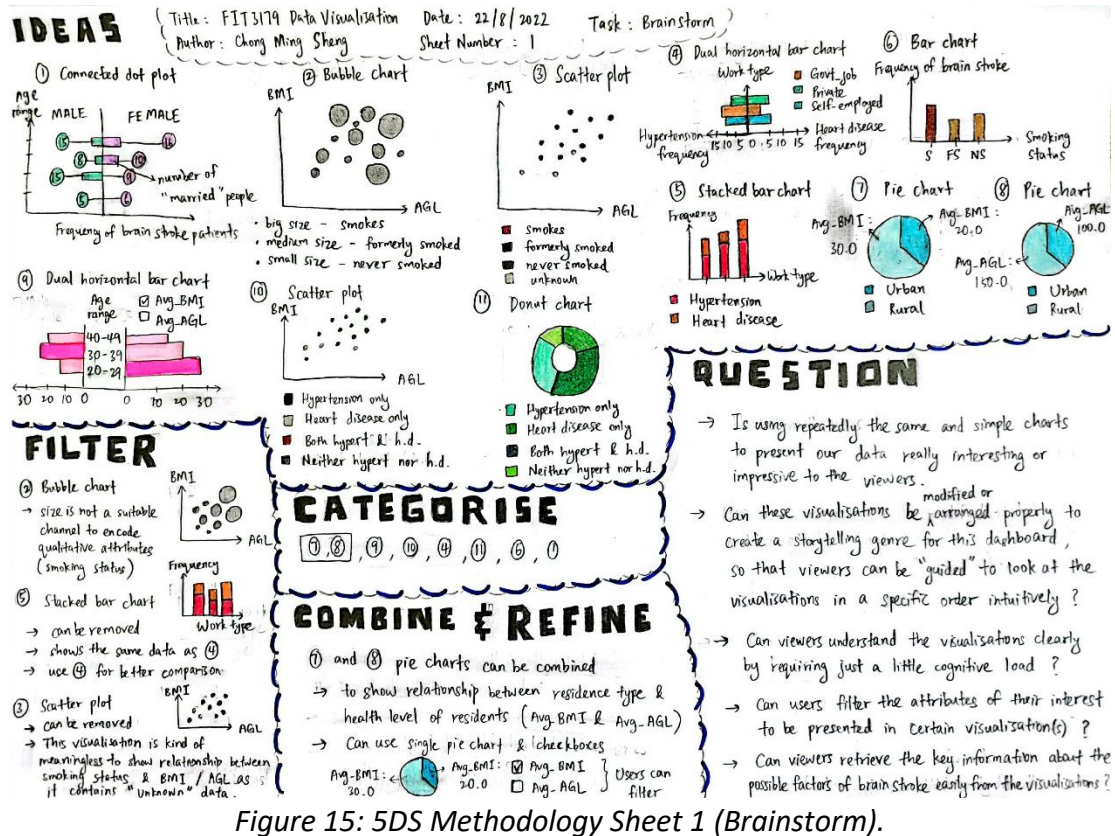 IDEAS
Title : FIT3179 Data Visualisation Date : 22/8/2022 Task : Brainstorm
Author : Chong Ming Sheng Sheet Number : 1
① Connected dot plot
Age range
MALE FEMALE
15 16
8 10
15 9
5 6
number of "married" people
Frequency of brain stroke patients
② Bubble chart
BMI
AGL
• big size - smokes
• medium size - formerly smoked
• small size - never smoked
③ Scatter plot
BMI
AGL
smokes
formerly smoked
never smoked
unknown
④ Dual horizontal bar chart
Work type
Govt_job
Private
Self-employed
Hypertension frequency
15 10 5 0 5 10 15
Heart disease frequency
⑥ Bar chart
Frequency of brain stroke
S FS NS
Smoking status
⑤ Stacked bar chart
Frequency
Work type
Hypertension
Heart disease
⑦ Pie chart
Avg_BMI : 30.0
Avg_BMI : 20.0
Urban
Rural
⑧ Pie chart
Avg_AGL : 100.0
Avg_AGL : 150.0
Urban
Rural
⑨ Dual horizontal bar chart
Age range
Avg_BMI
Avg_AGL
40-49
30-39
20-29
30 20 10 0 0 10 20 30
⑩ Scatter plot
BMI
AGL
Hypertension only
Heart disease only
Both hypert & h.d.
Neither hypert nor h.d.
⑪ Donut chart
Hypertension only
Heart disease only
Both hypert & h.d.
Neither hypert nor h.d.
FILTER
② Bubble chart
→ size is not a suitable
channel to encode
qualitative attributes
(smoking status)
BMI
AGL
⑤ Stacked bar chart
→ can be removed
→ shows the same data as ④
→ use ④ for better comparison
Frequency
Work type
③ Scatter plot
→ can be removed
→ This visualisation is kind of
meaningless to show relationship between
smoking status & BMI / AGL as
it contains "unknown" data.
BMI
AGL
CATEGORISE
⑦,⑧ , ⑨ , ⑩ , ④ , ⑪ , ⑥ , ①
COMBINE & REFINE
⑦ and ⑧ pie charts can be combined
→ to show relationship between residence type &
health level of residents (Avg_BMI & Avg-AGL)
→ Can use single pie chart & checkboxes
Avg-BMI : 30.0
Avg_BMI : 20.0
Avg_BMI
Avg_AGL
Users can filter
QUESTION
→ Is using repeatedly the same and simple charts
to present our data really interesting or
impressive to the viewers.
→ Can these visualisations be modified or arranged properly to
create a storytelling genre for this dashboard,
so that viewers can be "guided" to look at the
visualisations in a specific order intuitively ?
→ Can viewers understand the visualisations clearly
by requiring just a little cognitive load ?
→ Can users filter the attributes of their interest
to be presented in certain visualisation(s) ?
→ Can viewers retrieve the key information about the
possible factors of brain stroke easily from the visualisations ?
Figure 15: 5DS Methodology Sheet 1 (Brainstorm).